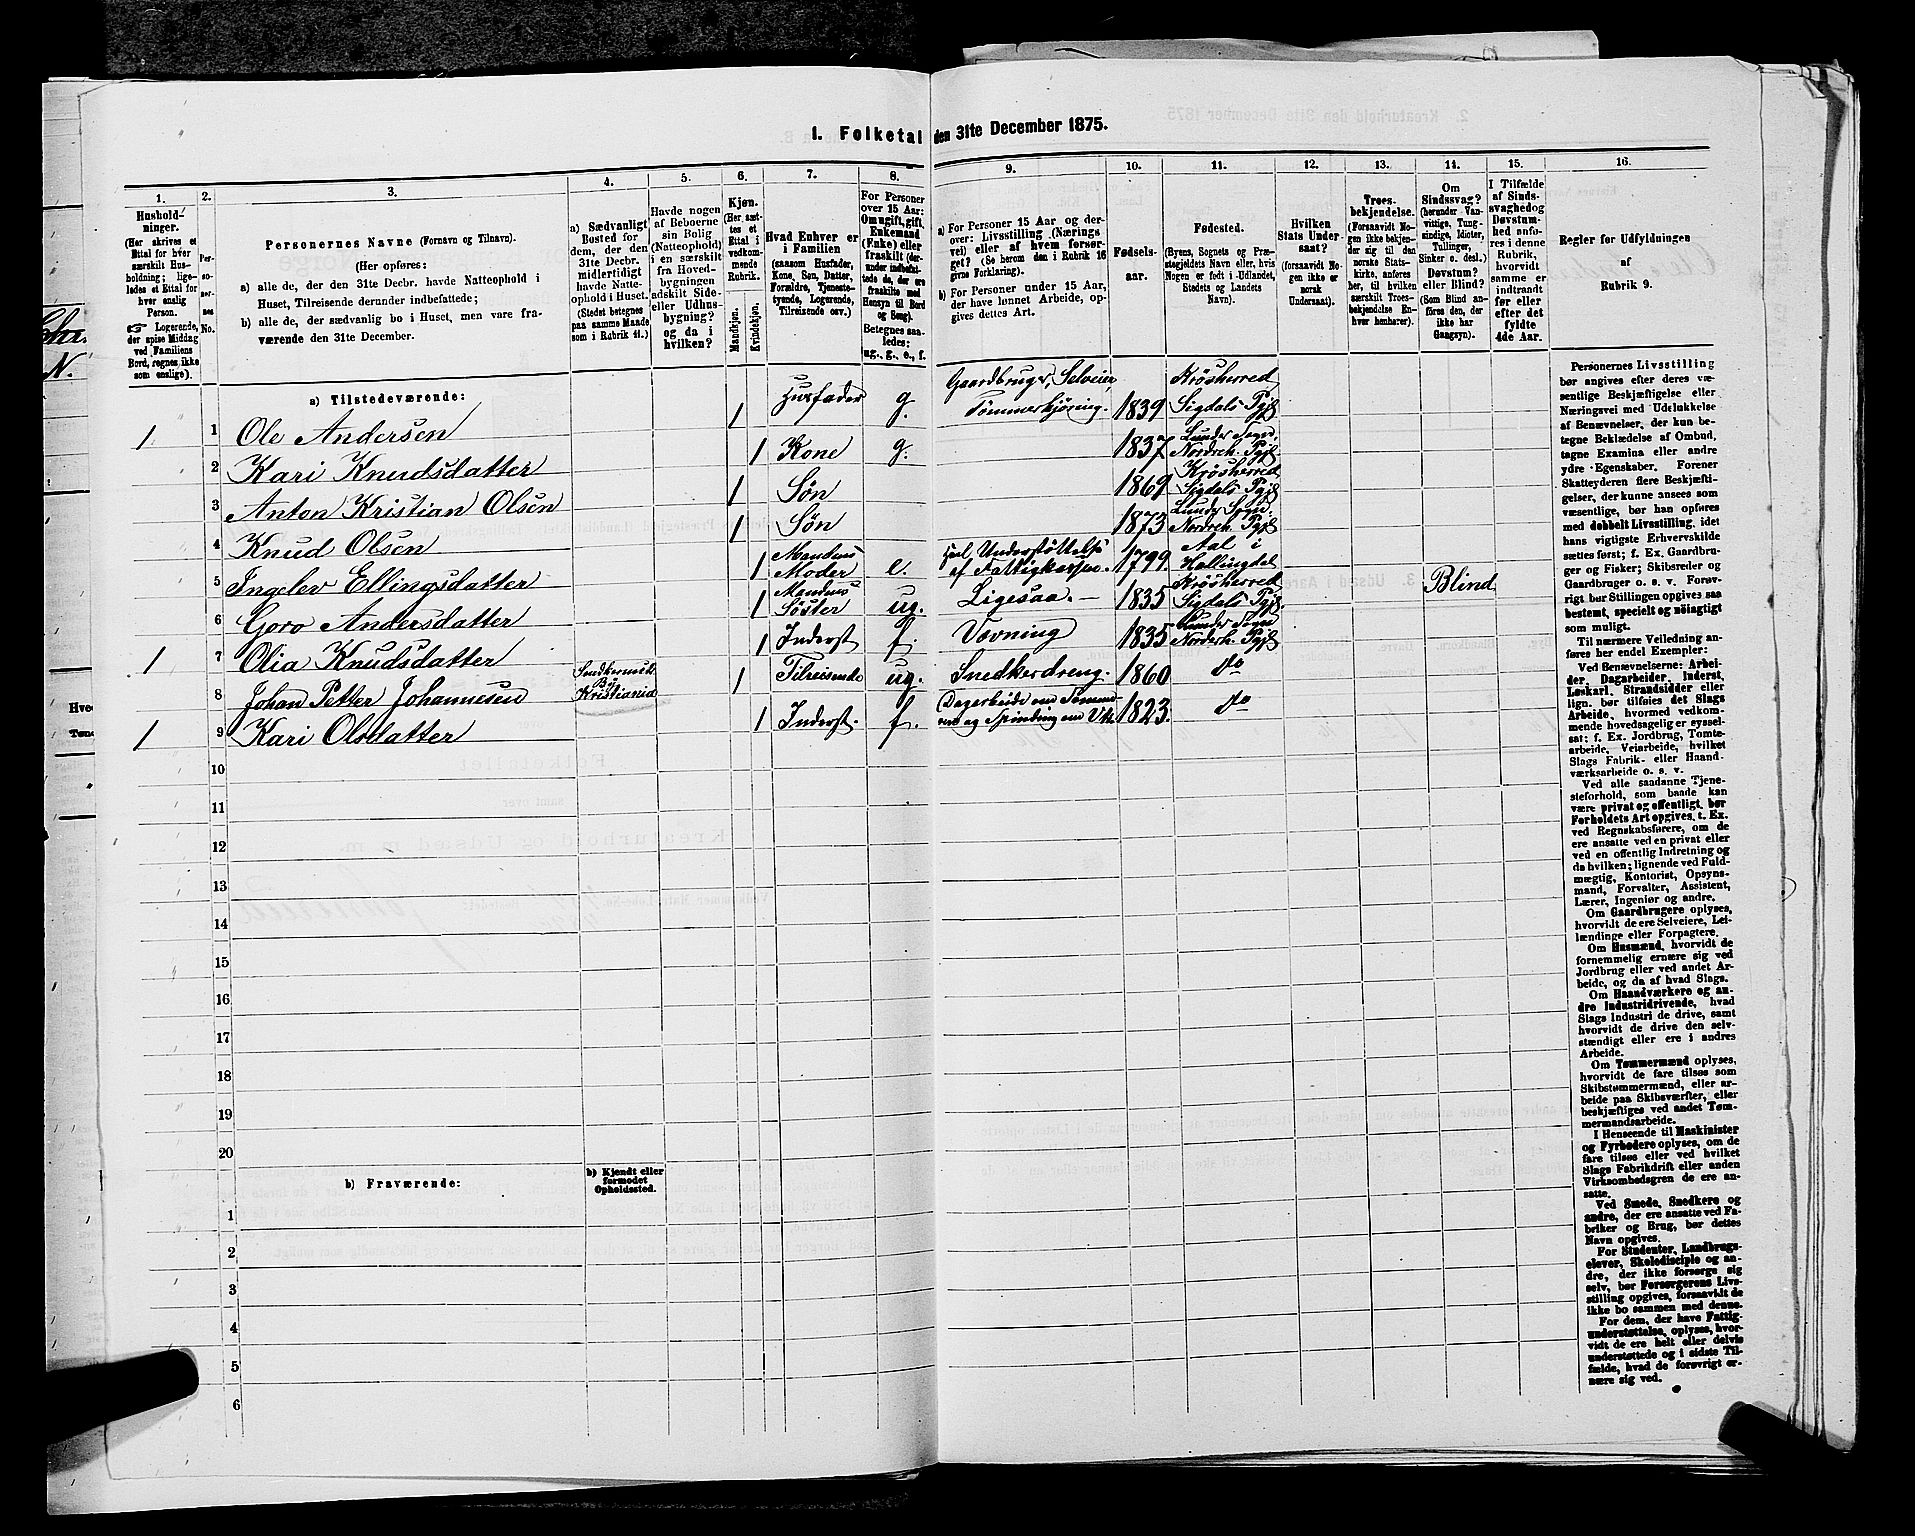 1. Folketal den 31te December 1875.
1. 2. 3. 4. 5. 6. 7. 8. 9. 10. 11. 12. 13. 14. 15. 16.
Hushold-
ninger.
(Her skrives et
Ettal for hver
særskilt Hus-
holdning; lige-
ledes et Ettal for
hver enslig
Person.
☞ Logerende,
der spise Middag
ved Familiens
Bord, regnes ikke
som enslige).
Per-
so-
ner-
nes
No.
Personernes Navne (Fornavn og Tilnavn).
(Her opføres:
a) alle de, der den 31te Decbr. havde Natteophold i
Huset, Tilreisende derunder indbefattede;
b) alle de, der sædvanlig bo i Huset, men vare fra-
værende den 31te December.
a) Sædvanligt
Bosted for
dem, der den
31te Decbr.
midlertidigt
havde Natte-
ophold i Huset.
(Stedet betegnes
paa samme Maade
som i Rubrik 11.)
Havde nogen
af Beboerne
sin Bolig
(Natteophold)
i en særskilt
fra Hoved-
bygningen
adskilt Side-
eller Udhus-
bygning?
og da i
hvilken?
Kjøn.
(Her sæt-
tes et
Ettal i
vedkom-
mende
Rubrik.
Mandkjøn.
Kvindekjøn.
Hvad Enhver er
i Familien
(saasom Husfader,
Kone, Søn, Datter,
Forældre, Tjeneste-
tyende, Logerende,
Tilreisende osv.)
For Personer
over 15 Aar:
Om ugift, gift,
Enkemand
(Enke) eller
fraskilt (der-
under indbefat-
tede de, der ere
fraskilte med
Hensyn til Bord
og Seng).
Betegnes saa-
ledes:
ug., g., e., f.
a) For Personer 15 Aar og der-
over: Livsstilling (Nærings
vei) eller af hvem forsør-
get? (Se herom den i Rubrik 16
givne Forklaring).
b) For Personer under 15 Aar,
der have lønnet Arbeide, op-
gives dettes Art.
Fødsels-
aar.
Fødested.
(Byens, Sognets og Præ-
stegjeldets Navn eller, hvis
Nogen er født i Udlandet,
Stedets og Landets
Navn).
Hvilken
Stats Under-
saat?
(forsaavidt No-
gen ikke er
norsk
Undersaat).
Troes-
bekjendelse.
(Forsaavidt No-
gen ikke bekjen-
der sig til den
norske Stats-
kirke, anføres
her, til hvilken
særskilt Troes-
bekjendelse En-
hver henhører).
Om
Sindssvag?
(herunder Van-
vittige, Tung-
sindige, Idioter,
Tullinger,
Sinker o. desl.)
Døvstum?
eller Blind?
(Som Blind an-
føres den, der
ikke har
Gangsyn).
I Tilfælde
af Sinds-
svaghed og
Døvstum-
hed anfø-
res i denne
Rubrik,
hvorvidt
samme er
indtraadt
før eller
efter det
fyldte
4de Aar.
Regler for Udfyldningen
af
Rubrik 9.
a) Tilstedeværende:
1 1 Ole Andersen 1 Husfader g. Gaardbruger, Selveier, Tømmerkjøring. 1839 Krösherred Sigdals Pgjl
2 Kari Knudsdatter 1 Kone g. 1837 Lunder Sogn, Norderh. Pgjl
3 Anton Kristian Olsen 1 Søn 1869 Krösherred Sigdals Pgjl
4 Knud Olsen 1 Søn 1873 Lunder Sogn. Norderh. Pgjl
5 Ingelev Ellingsdatter 1 Mandens Moder e. Hel Understöttelse af Fattigkassen. 1799. Aal i Hallingdal
6 Goro Andersdatter 1 Mandens Søster ug. Ligesaa. – 1835 Krösherred Sigdals Pgjl Blind
1 7 Olia Knudsdatter 1 Inderst f. Vævning 1835 Lunder Sogn Norderh. Pgjl
8 Johan Petter Johannesen Kristiania 1 Tilreisende ug. Snedkerdreng. 1860 do
1 9 Kari Olsdatter 1 Inderst. f. Dagarbeide om Sommeren og Spinding om Vtr 1823. do
10
11
12
13
14
15
16
17
18
19
20
b) Fraværende:
b) Kjendt eller
formodet
Opholdssted.
1
2
3
4
5
6
Personernes Livsstilling
bør angives efter deres væ-
sentlige Beskjæftigelse eller
Næringsvei med Udelukkelse
af Benævnelser, der kun be-
tegne Beklædelse af Ombud,
tagne Examina eller andre
ydre Egenskaber. Forener
Skatteyderen flere Beskjæfti-
gelser, der kunne ansees som
væsentlige, bør han opføres
med dobbelt Livsstilling, idet
hans vigtigste Erhvervskilde
sættes først; f. Ex. Gaardbru-
ger og Fisker; Skibsreder og
Gaardbruger o. s. v. Forøv-
rigt bør Stillingen opgives saa
bestemt, specielt og nøiagtigt
som muligt.
Til nærmere Veiledning an-
føres her endel Exempler:
Ved Benævnelserne: Arbei-
der, Dagarbeider, Inderst,
Løskarl, Strandsidder eller
lign. bør tilføies det Slags
Arbeide, hvormed vedkom-
mende hovedsagelig er syssel-
sat; f. Ex. Jordbrug, Tomte-
arbeide, Veiarbeide, hvilket
Slags Fabrik- eller Haand-
værksarbeide o. s. v.
Ved alle saadanne Tjene-
steforhold, som baade kan
være privat og offentligt, bør
Forholdets Art opgives, t. Ex.
ved Regnskabsførere, om de
ere ansatte ved en privat eller
ved en offentlig Indretning og
da hvilken; lignende ved Fuld-
mægtig, Kontorist, Opsyns-
mand, Forvalter, Assistent,
Lærer, Ingeniør og andre.
Om Gaardbrugere oplyses,
hvorvidt de ere Selveiere, Lei-
lændinge eller Forpagtere.
Om Husmænd, hvorvidt de
fornemmelig ernære sig ved
Jordbrug eller ved andet Ar-
beide, og da af hvad Slags.
Om Haandværkere og an-
dre Industridrivende, hvad
Slags Industri de drive, samt
hvorvidt de drive den selv-
stændigt eller ere i andres
Arbeide.
Om Tømmermænd oplyses,
hvorvidt de fare tilsøs som
Skibstømmermænd, eller ar-
beide paa Skibsværfter, eller
beskjæftiges ved andet Tøm-
mermandsarbeide.
I Henseende til Maskinister
og Fyrbødere oplyses, om de
fare tilsøs eller ved hvilket
Slags Fabrikdrift eller anden
Virksombødsgren de ere an-
satte.
Ved Smede, Snedkere og
andre, der ere ansatte ved Fa-
briker og Brug, bør dettes
Navn opgives.
For Studenter, Landbrugs-
elever, Skoledisciple og an-
dre, der ikke forsørge sig
selv, bør Forsørgerens Livs-
stilling opgives, forsaavidt de
ikke bo sammen med denne.
For dem, der have Fattig-
understøttelse, oplyses, hvor-
vidt de ere helt eller delvis
understøttede og i sidste Til-
fælde, hvad de forøvrigt er-
nære sig ved.